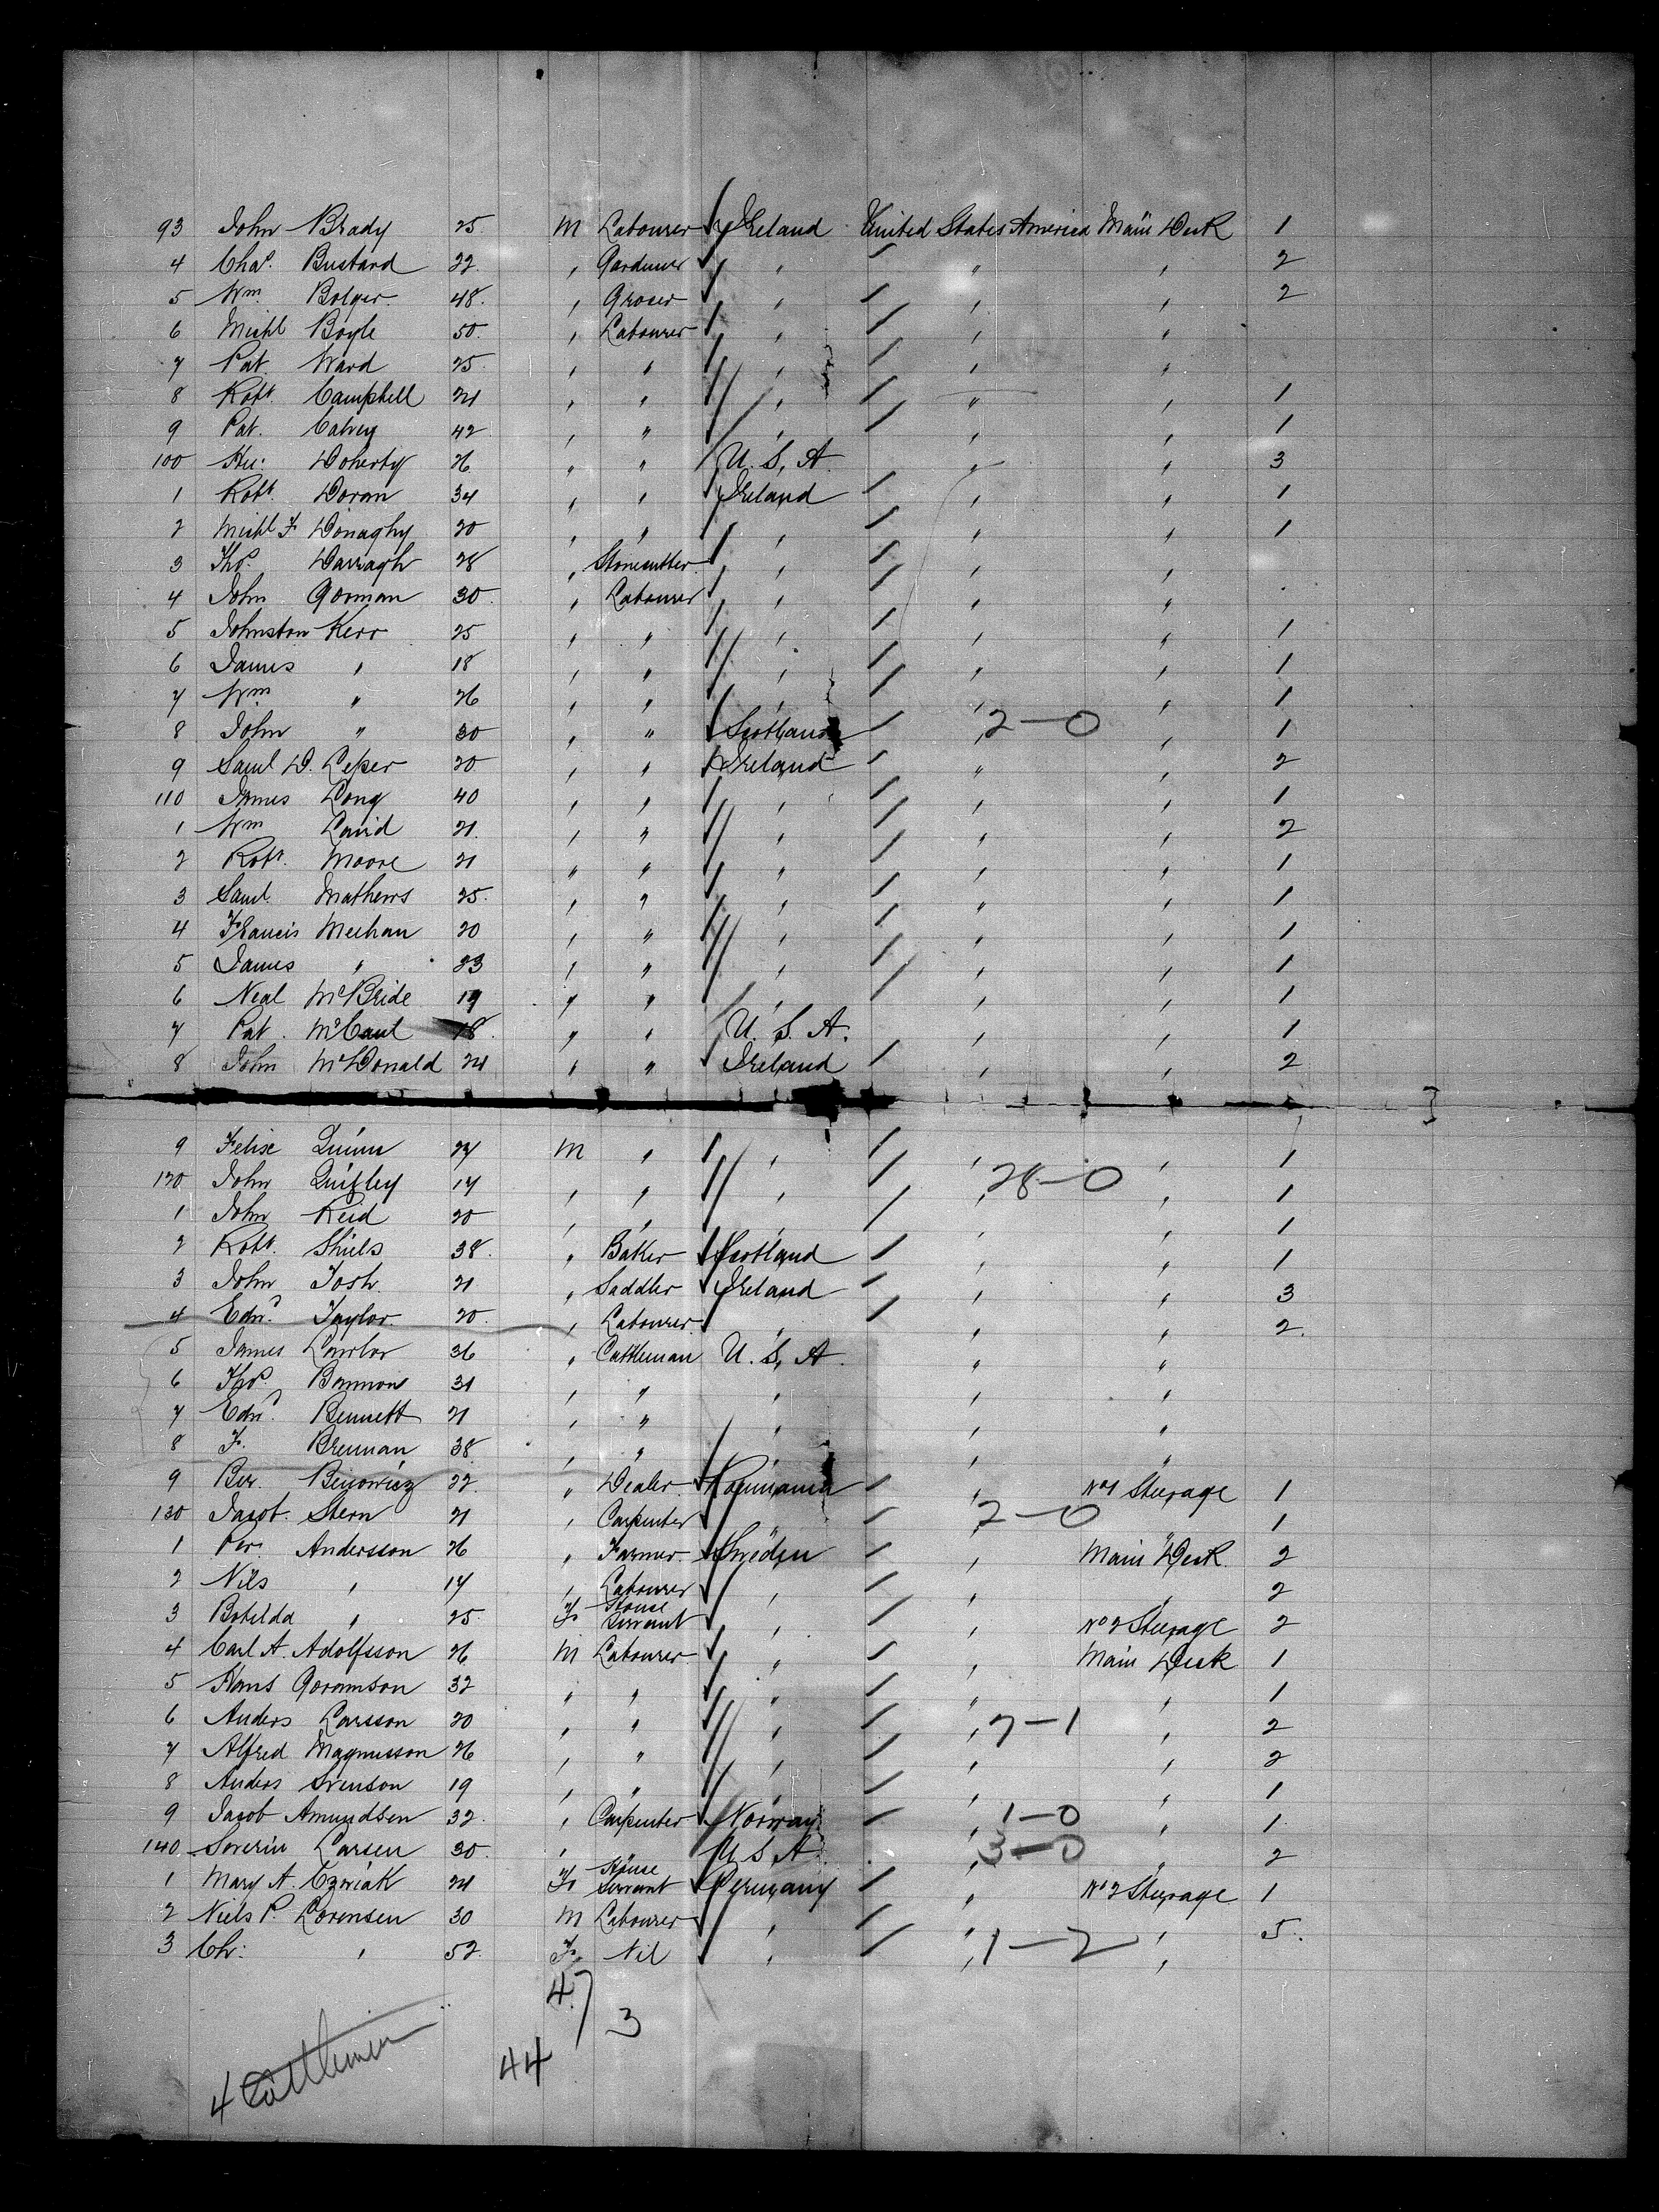 93 John Brady 25 M Labourer Ireland United States America Main Deck 1
4 Chas. Bustard 22 " Gardener " " " 2
5 Wm. Bolger 48 " Groser " " " 2
6 Michl Boyle 50 " Labourer " " "
7 Pat. Ward 25 " " " " "
8 Robt. Campbell 21 " " " " " 1
9 Pat. Calvey 42 " " " " " 1
100 Hu: Doherty 26 " " U.S.A. " " 3
1 Robt. Doran 34 " " Ireland " " 1
2 Michl F Donaghy 20 " " " " " 1
3 Thos. Darragh 28 " Stonecutter " " "
4 John Gorman 30 " Labourer " " "
5 Johnston Kerr 25 " " " " " 1
6 James " 18 " " " " " 1
7 Wm " 26 " " " " " 1
8 John " 30 " " Scotland " 2-0 " 1
9 Saml D. Leper 20 " " Ireland " " 2
110 James Long 40 " " " " " 1
1 Wm Laird 21 " " " " " 2
2 Robt. Moore 21 " " " " " 1
3 Saml. Mathews 25 " " " " " 1
4 Francis Meehan 20 " " " " " 1
5 James " 23 " " " " " 1
6 Neal McBride 19 " " " " " 1
7 Pat. McCaul 18 " " U.S.A. " " 1
8 John McDonald 21 " " Ireland " " 2
9 Felix Quinn 27 M " " " " 1
120 John Quigley 17 " " " " 28-0 " 1
1 John Reid 20 " " " " " 1
2 Robt. Shiels 38 " Baker Scotland " " 1
3 John Tosh 21 " Saddler Ireland " " 3
4 Edwd. Taylor 20 " Labourer " " " 2
5 James Lawlor 36 " Cattleman U.S.A. " "
6 Thos. Bannon 31 " " " " "
7 Edwd. Bennett 21 " " " " "
8 F. Brennan 38 " " " " "
9 Ber. 22 " Dealer Roumania " No 1 Steerage 1
130 Jacob Stern 21 " Carpenter " " 2-0 " 1
1 Per. Andersson 26 " Farmer Sweden " Main Deck 2
2 Nils " 17 " Labourer " " " 2
3 Botilda " 25 F House Servant " " No 2 Steerage 2
4 Carl A. Adolfsson 26 M Labourer " " Main Deck 1
5 Hans Goranson 32 " " " " " 1
6 Anders Larsson 20 " " " " 7-1 " 2
7 Alfred Magnusson 26 " " " " " 2
8 Anders Svenson 19 " " " " " 1
9 Jacob Amundsen 32 " Carpenter Norway " 1-0 " 1
140 Severin Larsen 30 " " U.S.A. " 3-0 " 2
1 Mary A. 21 F House Servant Germany " No 2 Steerage 1
2 Niels P. Lorensen 30 M Labourer " " " 5
3 Ch: " 52 F Nil " " 1-2 "
47
3
44
4 Cattlemen